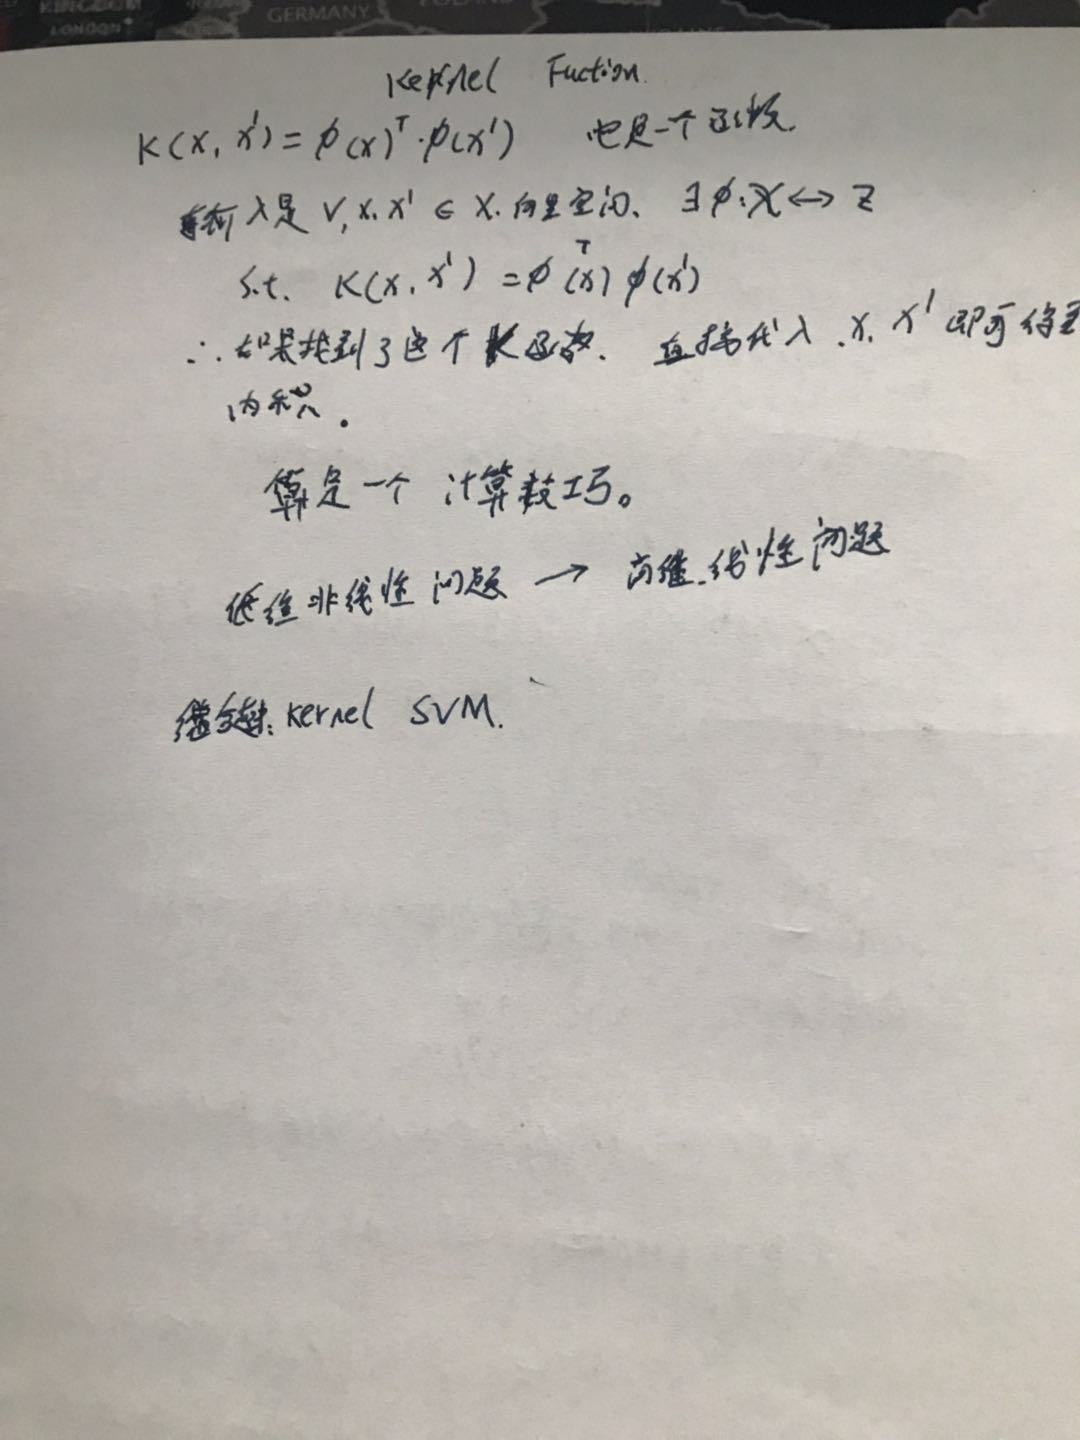 GERMANY
LONDON
Kernel Fuction.
K(x, x') = φ(x)ᵀ·φ(x') 也是一个函数.
输入是 ∀, x, x' ∈ X. 向量空间、 ∃ φ: X ↔ Z
s.t. K(x, x') = φᵀ(x) φ(x')
∴ 如果找到了这个 K函数. 直接代入 x, x' 即可得到
内积.
算是一个 计算技巧。
低维非线性问题 → 高维 线性问题
kernel SVM.